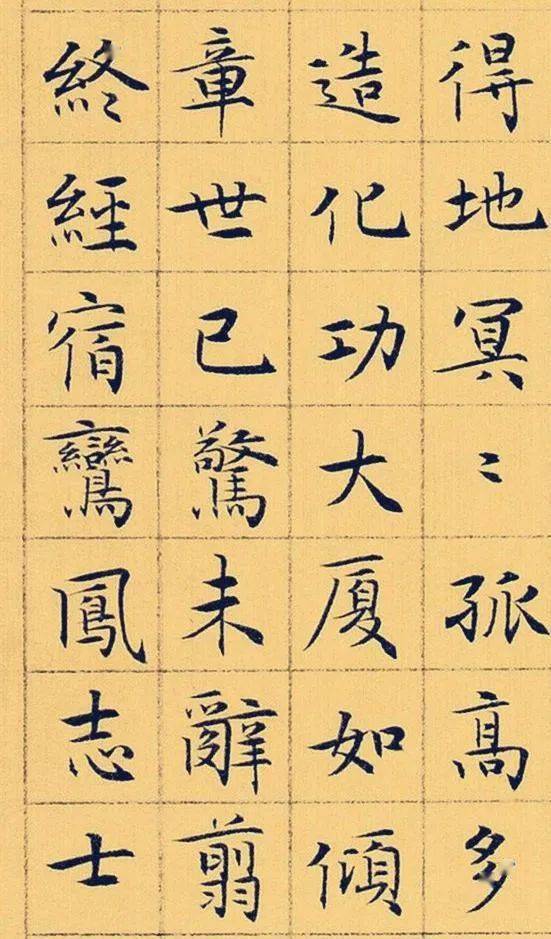 得地冥〻孤高多
造化功大厦如傾
章世已驚未辭翦
終經宿鸞鳳志士